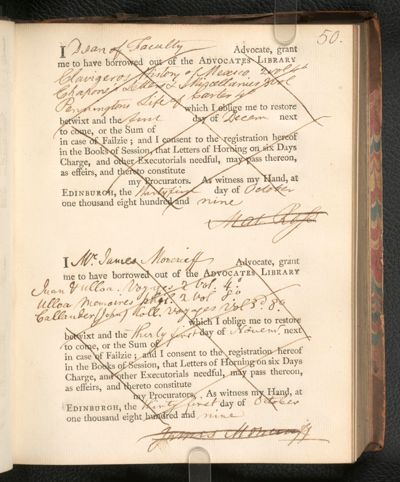 50.
I Dean of Faculty Advocate, grant
me to have borrowed out of the ADVOCATES LIBRARY
Clavigeros History of Mexico, 2 vol 4to
Chapone's Letters & Miscellanies 3 vol
Penningtons Life of Carter 4to
which I oblige me to restore
betwixt and the first day of Decem next
to come, or the Sum of
in case of Failzie; and I consent to the registration hereof
in the Books of Session, that Letters of Horning on six Days
Charge, and other Executorials needful, may pass thereon,
as effeirs, and thereto constitute
my Procurators. As witness my Hand, at
EDINBURGH, the thirty first day of October
one thousand eight hundred and nine
Mat Ross
I Mr. James Moncrieff Advocate, grant
me to have borrowed out of the ADVOCATES LIBRARY
Juan & Ulloa Voyages 2 Vol. 4o.
Ulloa Memoires 2 vol 8o
Callender Voyages Vol 3d 8o.
which I oblige me to restore
betwixt and the thirty first day of Novem next
to come, or the Sum of
in case of Failzie; and I consent to the registration hereof
in the Books of Session, that Letters of Horning on six Days
Charge, and other Executorials needful, may pass thereon,
as effeirs, and thereto constitute
my Procurators. As witness my Hand, at
EDINBURGH, the thirty first day of October
one thousand eight hundred and nine
James Moncrieff